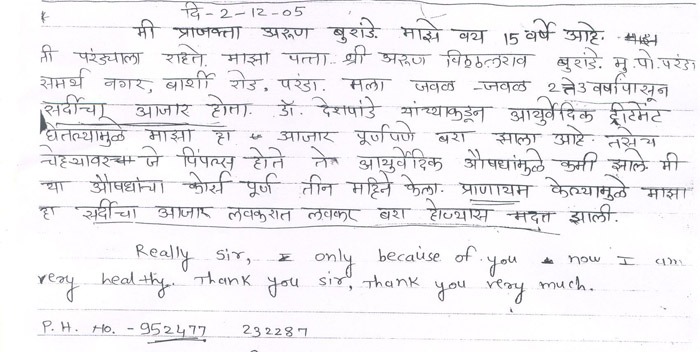 दि-2-12-05
मी प्राजक्ता अरूण बुरांडे. माझे वय 15 वर्षे आहे.
मी परंड्याला राहते. माझा पत्ता.. श्री अरूण विठ्ठलराव बुरांडे. मु.पो.परंडा
समर्थ नगर, बार्शी रोड, परंडा. मला जवळ-जवळ 2 ते 3 वर्षांपासून
सर्दीचा आजार होता. डॉ. देशपांडे यांच्याकडून आयुर्वेदिक ट्रीटमेंट
घेतल्यामुळे माझा हा आजार पूर्णपणे बरा झाला आहे. तसेच
चेहऱ्यावरचा जे पिंपल्स होते ते आयुर्वेदिक औषधांमुळे कमी झाले. मी
या औषधांचा कोर्स पूर्ण तीन महिने केला. प्राणायम केल्यामुळे माझा
हा सर्दीचा आजार लवकरात लवकर बरा होण्यास मदत झाली.
Really sir, only because of you now I am
very healthy. Thank you sir, Thank you very much.
P.H. No. - 952477 232287